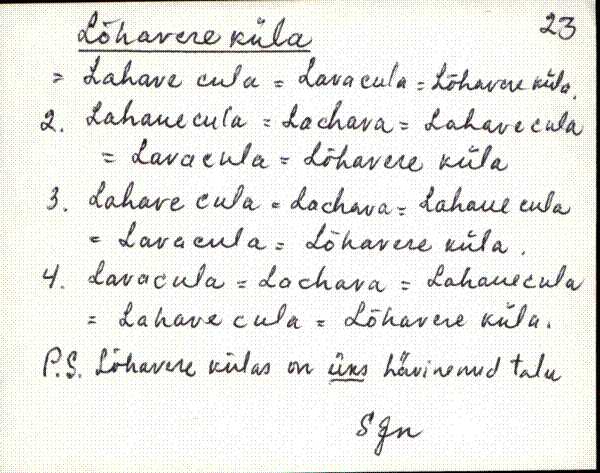 23
Lõhavere küla
= Lahave cula = Lavacula = Lõhavere küla.
2. Lahauecula = Lachava = Lahavecula
= Lavacula = Lõhavere küla
3. Lahave cula = Lachava = Lahaue cula
= Lavacula = Lõhavere küla.
4. Lavacula = Lachava = Lahauecula
= Lahave cula = Lõhavere küla.
P.S. Lõhavere külas on üks hävinenud talu